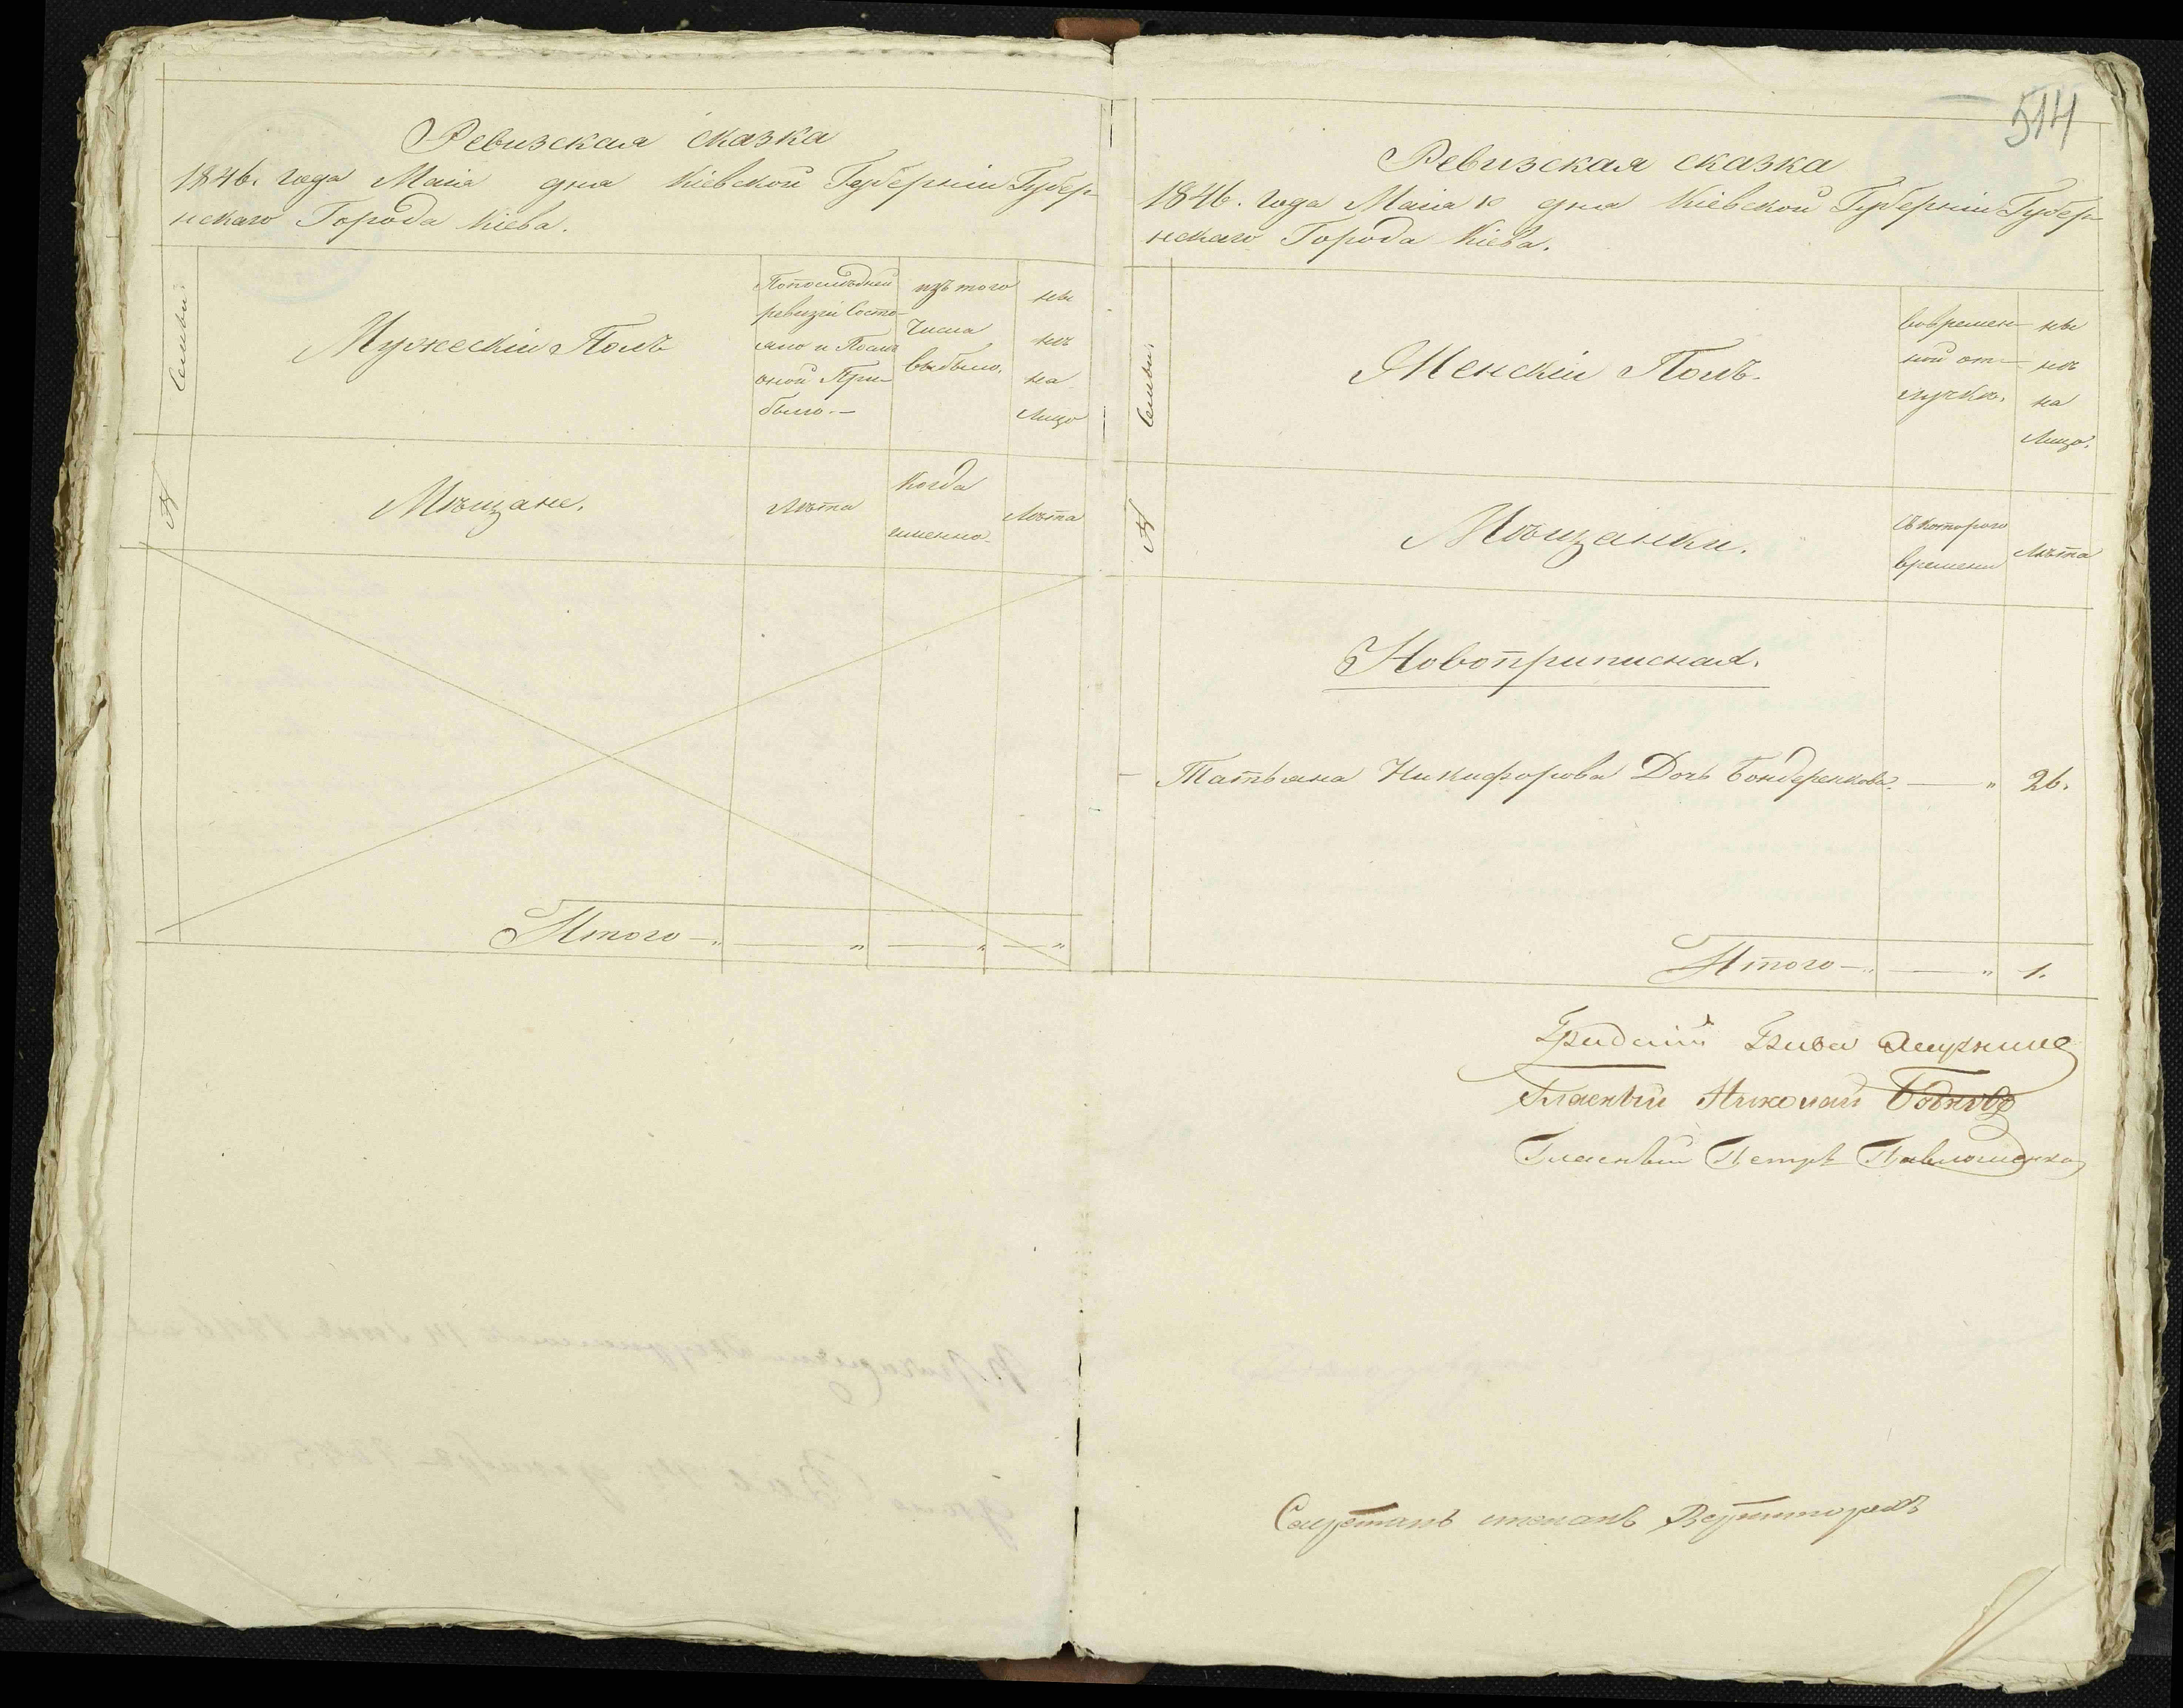 Ревизская сказка
1846. года Маія дня Кіевской Губерніи Губер-
нскаго Города Кіева.
Семьи.
Мужескій Полъ
Попоследней
ревизіи Состо-
яло и После
оной При-
было.-
изъ того
Числа
выбыло.
ны
нѣ
на
Лицо
№
Мѣщане.
Лѣта
Когда
именно.
Лѣта
Итого - " - " - " - "
514
Ревизская сказка
1846. года Маія 10 дня Кіевской Губерніи Губер-
нскаго Города Кіева.
Семьи.
Женскій Полъ.
Вовремен-
ной от-
лучкѣ.
ны
нѣ
на
Лицо.
№
Мѣщанки.
Съ котораго
времени
Лѣта
Новоприписная.
- Татьяна Никифорова Дочь Бондеренкова. - " 26.
Итого - " - " 1.
Градскій Глава
Гласный Николай
Гласный Петръ